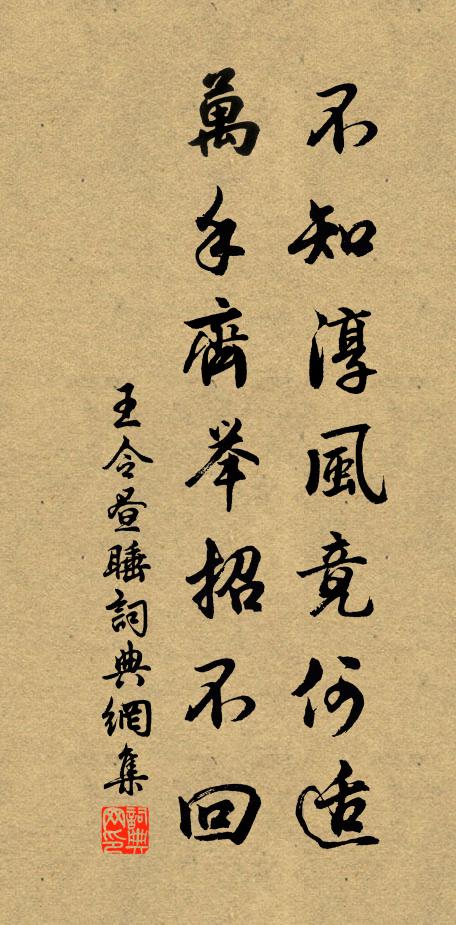 不知淳風竟何適
萬手齊举招不回
王令昼睡詞典網集
詞典网印